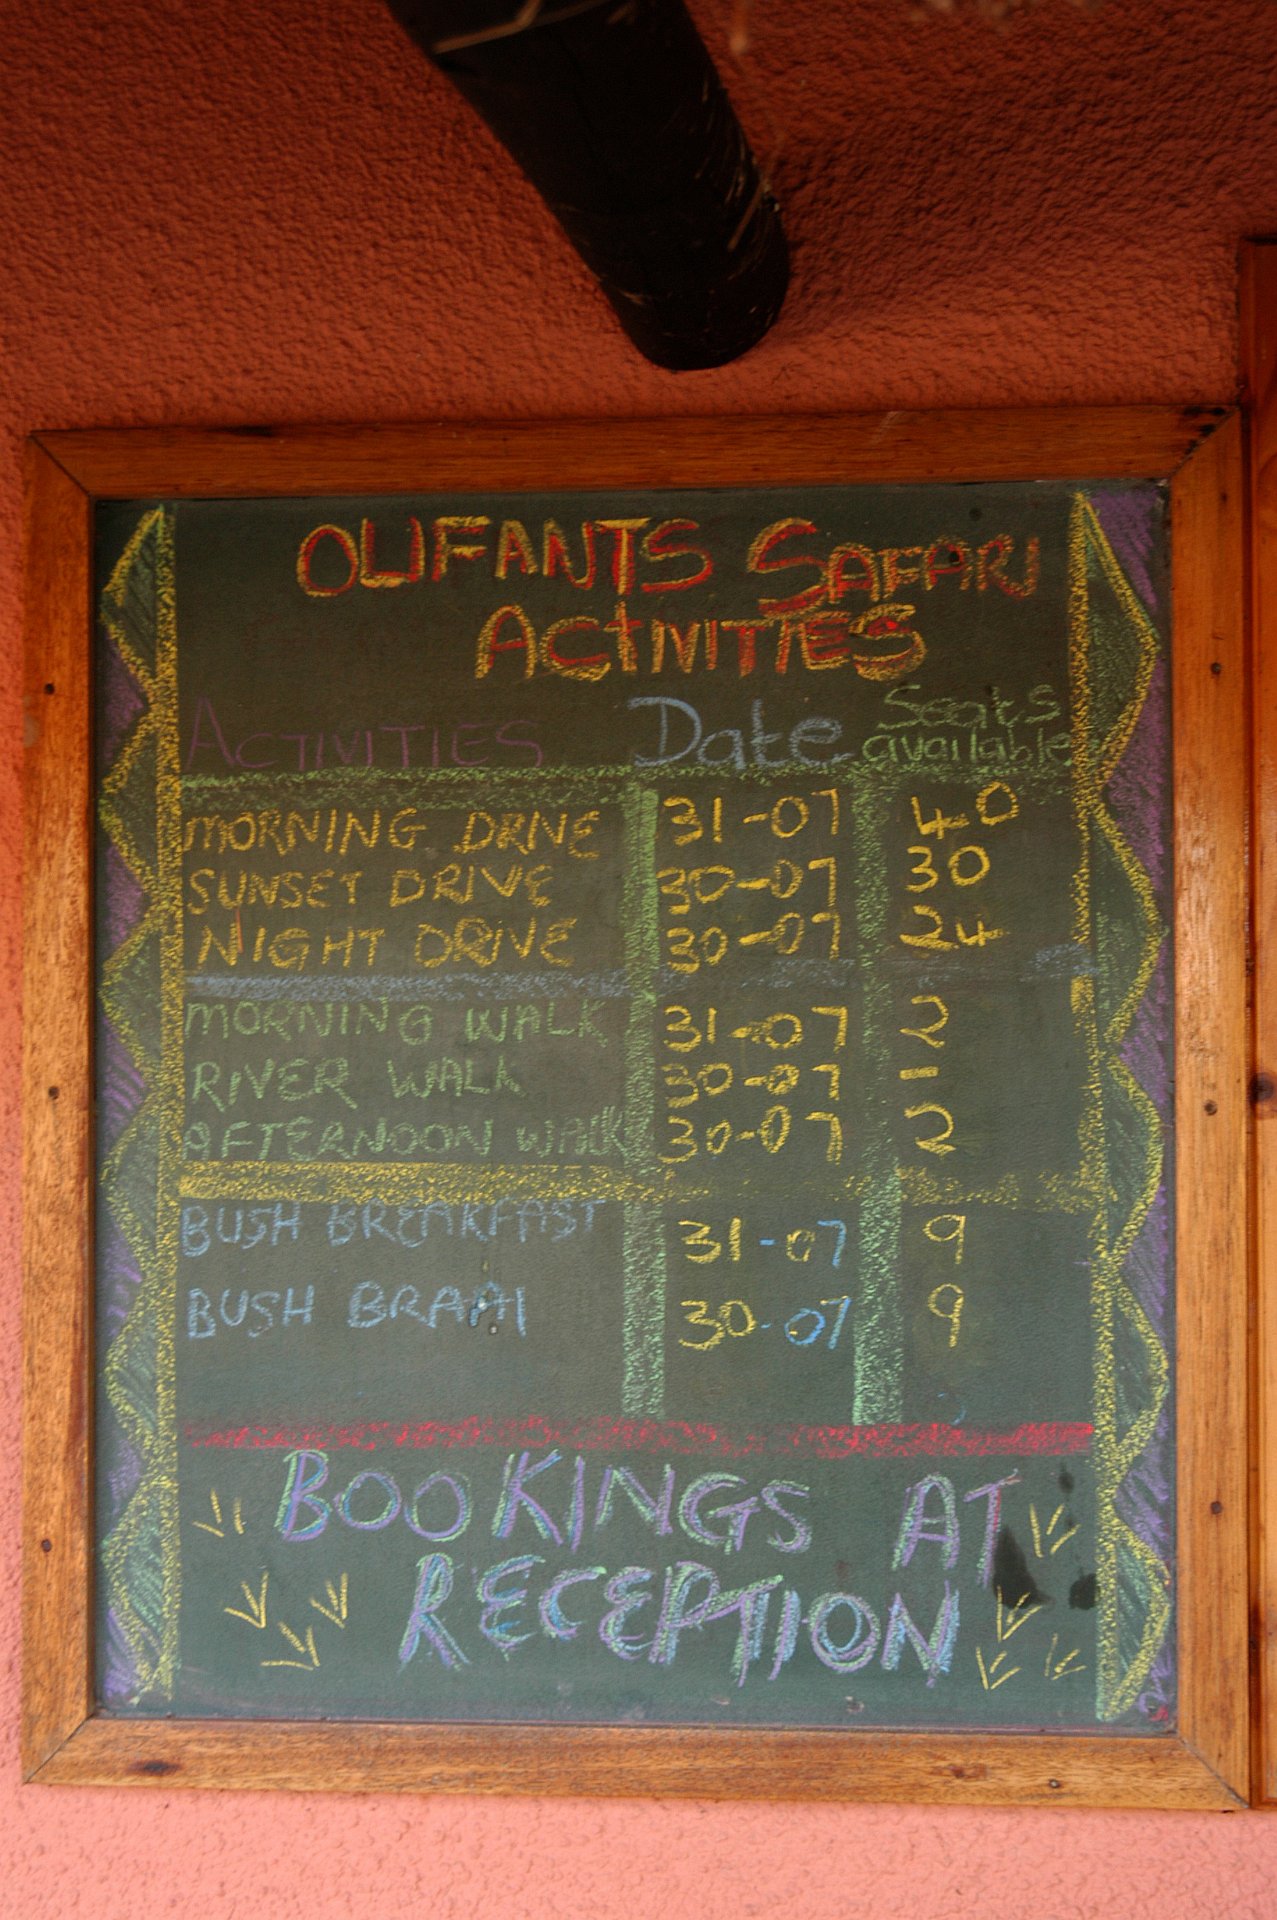 OLIFANTS SAFARI
ACTIVITIES
ACTIVITIES Date Seats available
MORNING DRIVE 31-07 40
SUNSET DRIVE 30-07 30
NIGHT DRIVE 30-07 24
MORNING WALK 31-07 2
RIVER WALK 30-07 -
AFTERNOON WALK 30-07 2
BUSH BREAKFAST 31-07 9
BUSH BRAAI 30-07 9
BOOKINGS AT
RECEPTION